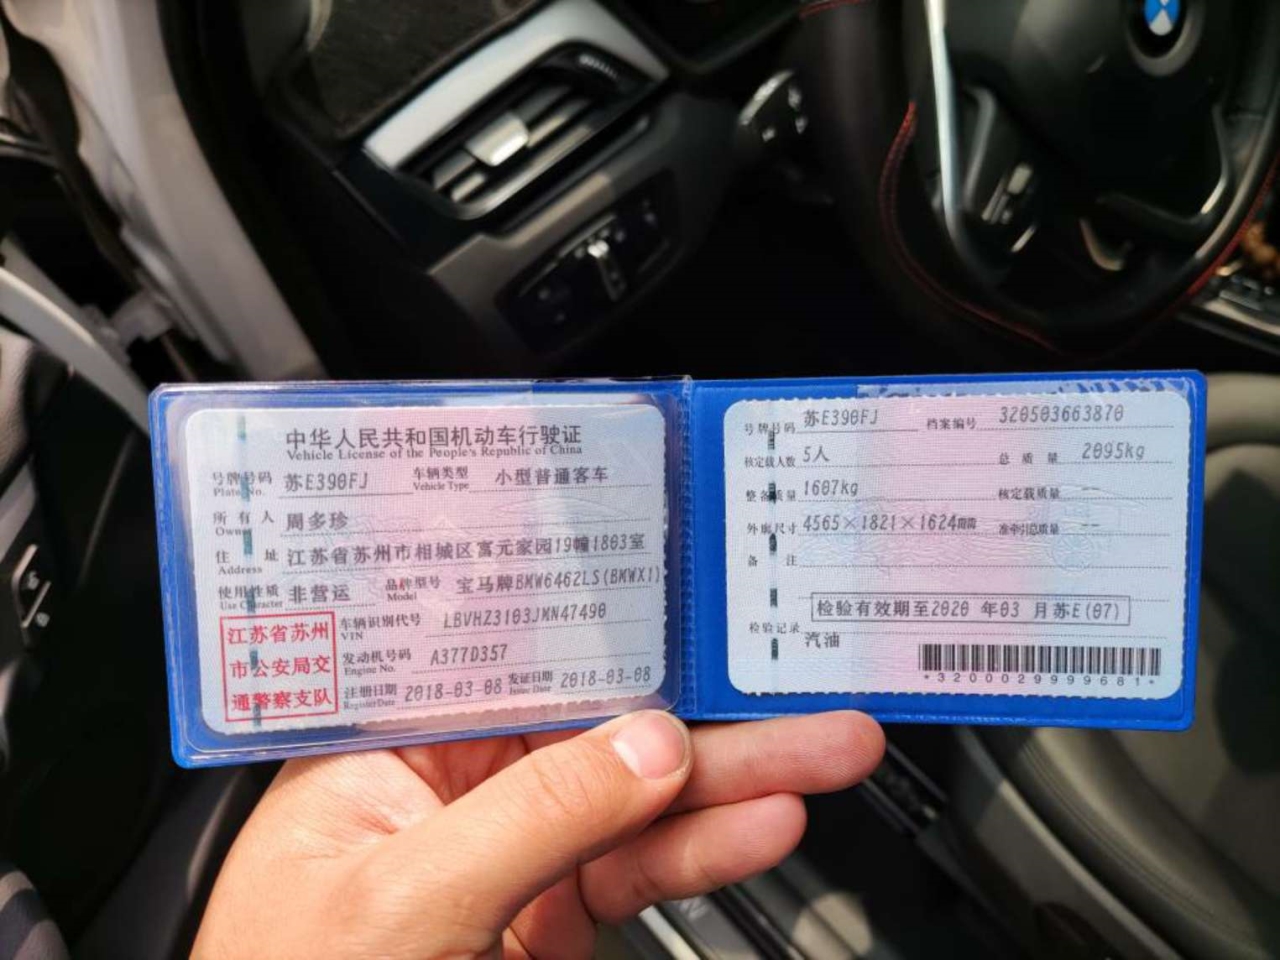 中华人民共和国机动车行驶证
Vehicle License of the People's Republic of China
号牌号码 苏E390FJ 车辆类型 小型普通客车
Plate No. Vehicle Type
所有人 周多珍
Owner
住址 江苏省苏州市相城区富元家园19幢1803室
Address
使用性质 非营运 品牌型号 宝马牌BMW6462LS(BMWX1)
Use Character Model
江苏省苏州
市公安局交
通警察支队
车辆识别代号 LBVHZ3103JMN47490
VIN
发动机号码 A377D357
Engine No.
注册日期 2018-03-08 发证日期 2018-03-08
Register Date Issue Date
号牌号码 苏E390FJ 档案编号 320503663870
核定载人数 5人 总质量 2095kg
整备质量 1607kg 核定载质量 --
外廓尺寸 4565×1821×1624mm 准牵引总质量 --
备注
检验有效期至2020 年03 月苏E(07)
检验记录
汽油
*3200029999681*